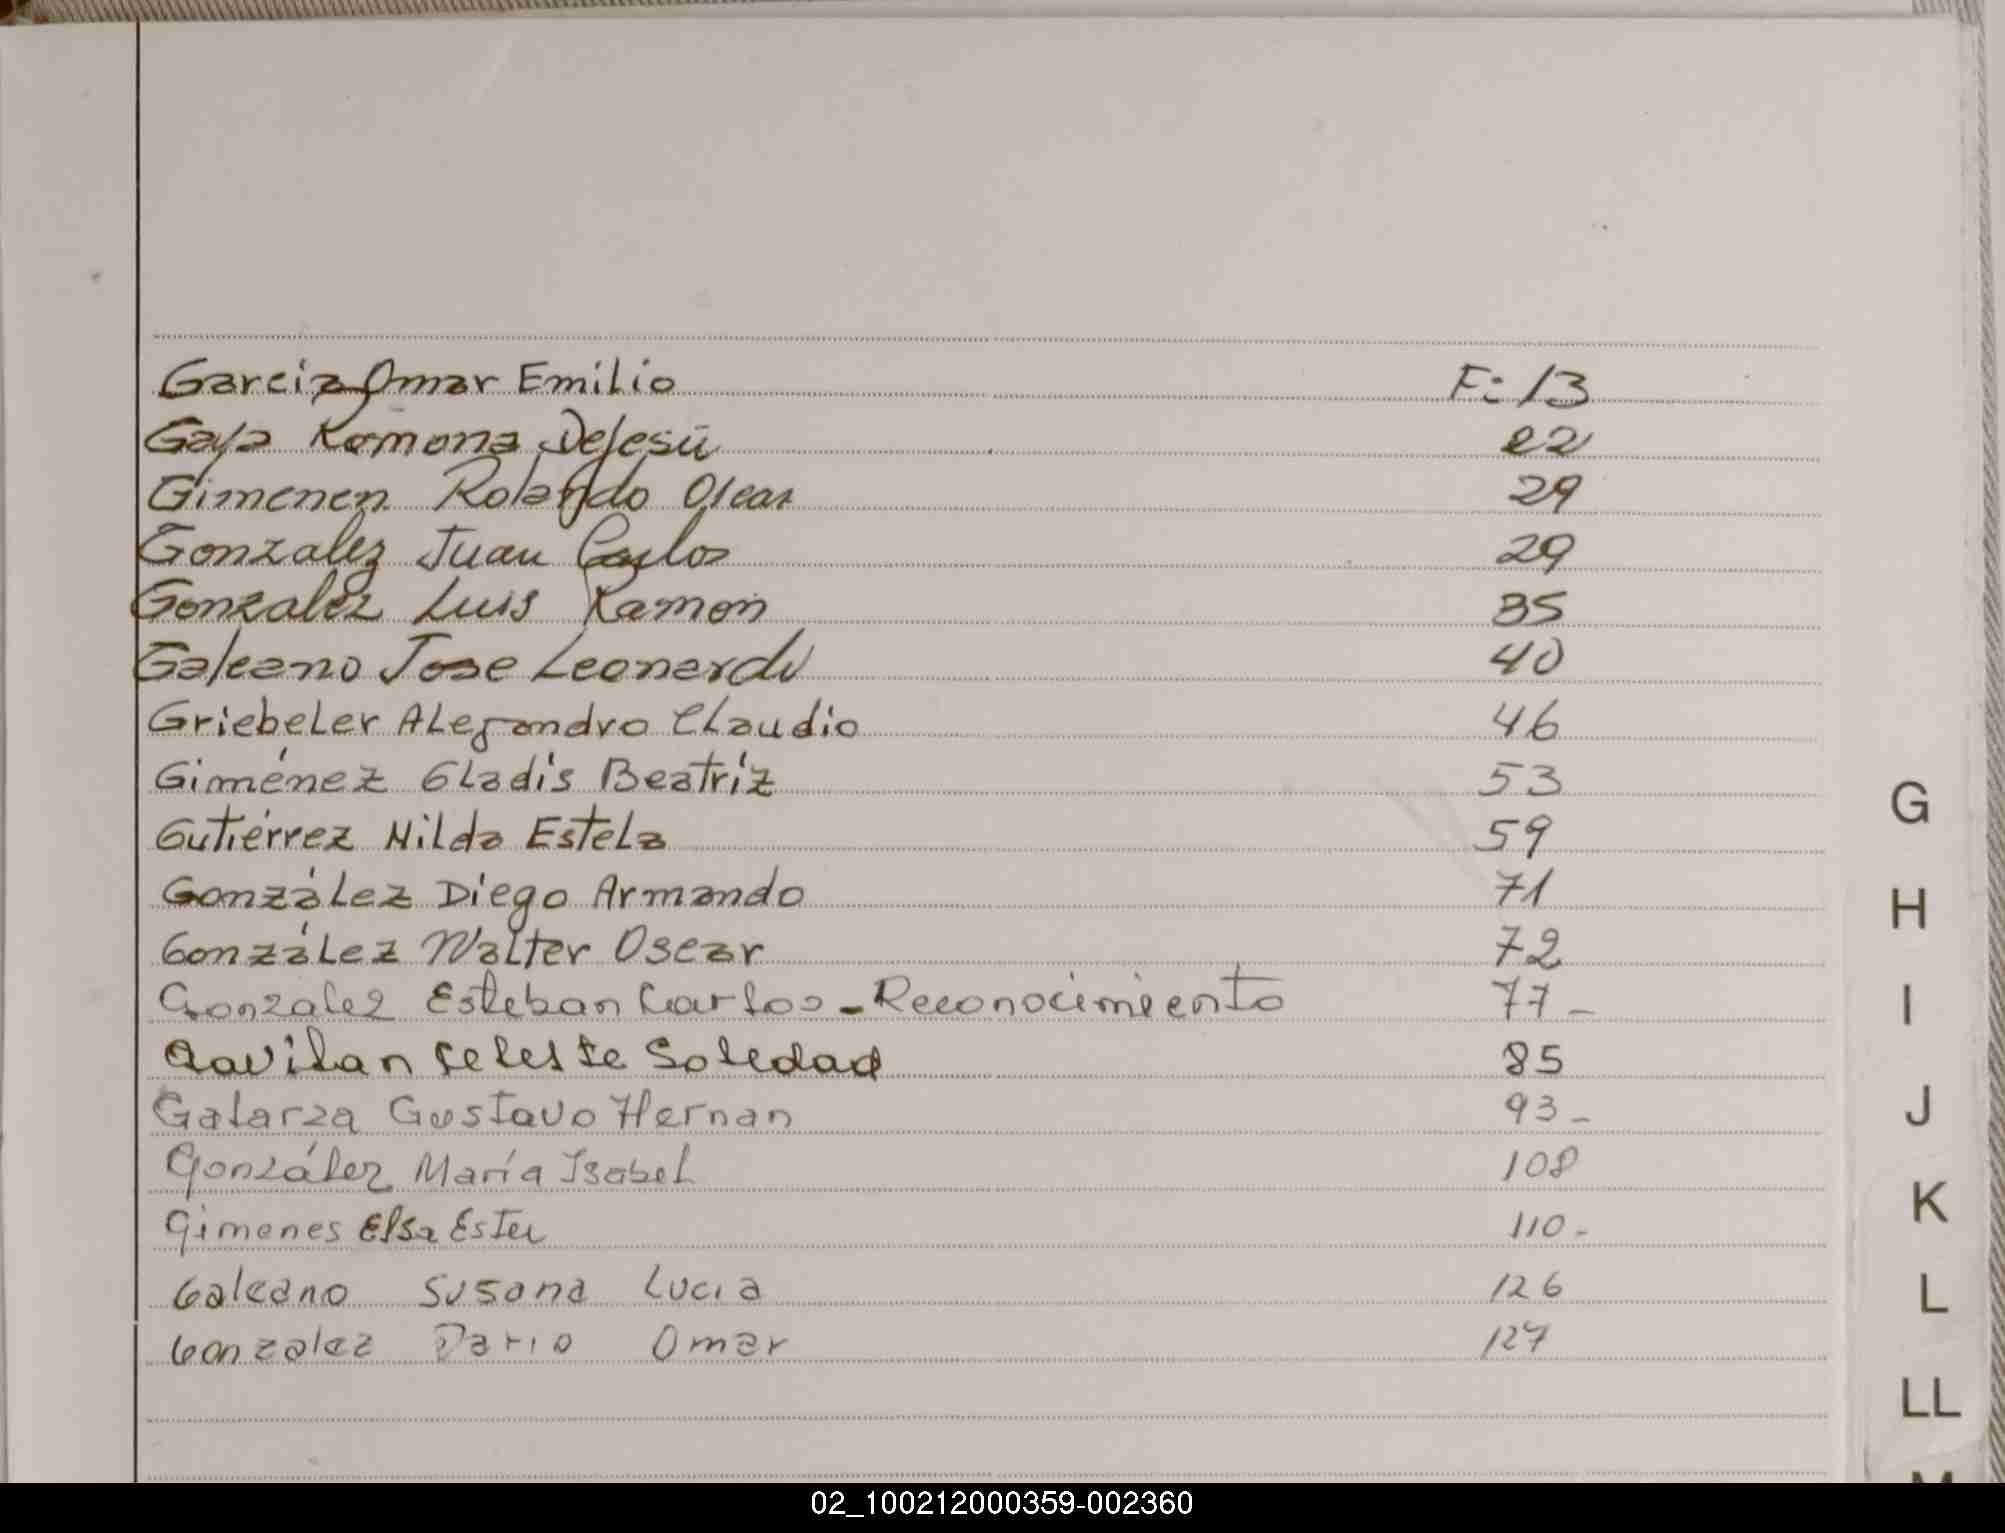 Garcia Omar Emilio F: 13
Gaya Ramona DeJesú 22
Gimenen Rolando Oscar 29
Gonzalez Juan Carlos 29
Gonzalez Luis Ramon 35
Galeano Jose Leonardo 40
Griebeler Alejandro Claudio 46
Giménez Gladis Beatriz 53
Gutiérrez Nilda Estela 59
González Diego Armando 71
González Walter Oscar 72
Gonzalez Esteban Carlos - Reconocimiento 77 -
Gavilan Celeste Soledad 85
Galarza Gustavo Hernan 93 -
González María Isabel 108
Gimenes Elsa Ester 110 -
Galeano Susana Lucia 126
Gonzalez Dario Omar 127
G
H
I
J
K
L
LL
M
02_100212000359-002360